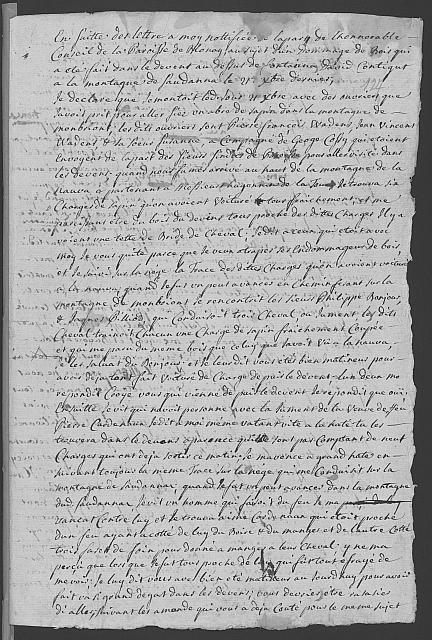 En Suitte des lettre a moy nottifiée de la part de l'honnorable
Conseil de la Paroisse de Blonay au sujet d'un dommage de Bois qui
a eté fait dans le devent au dessus de
a la montagne de Saudanna le 31 xbre dernier,
Je declare que Je montoit led. Jour 31 xbre avec des ouvriers que
J'avoit prit pour aller fiée un abre de Sapin dans la montagne de
monbrion, les dits ouvriers sont Pierre François Wadens Jean Vincent
Wadens & sa Soeur Susanne, a Compagné de George Cossy qui etoient
Envoyent de la part des Sieurs pour aller visité dans
les devent, quand nous fumes arrivé au haut de la montagne de la
nauva apartenant a Messieurs Je trouva Six
Charges de Sapin qu'on avoient Voituré tout fraichement, et me
parois etre du bois du devens tout proche des dittes Charges Il y a
voient une tette de Bride de Cheval, Je dit a ceux qui etoit avec
moy Je vous quitte parce que Je veux atraper les Endommageur de bois,
et Je Suivit sur la nege la Trace des dittes Charges qu'on avoient voituré
a la nauva, quand Je fut un peu avancés en Chemin Jesant sur la
montagne de monbrione Je rencontrit les Sieurs Philippe Bonjour,
& Jaques Pilliod, qui Conduisoit trois Cheval ou Jument les dits
Cheval trainoit chacun une Charge de Sapin fraichement Coupée
et qui me parû du meme bois que celuy que J'avoit Vû a la nauva
Je les saluat du Bonjour, et Je leur dit vous etes bien matineux pour
avoir deja tant fait Voiturés de Charge depuis le devent, l'un deux me
repondit Croyé vous qui vienne depuis le devent Je repondit que oüi,
Ensuitte Je vit qu'il n'avoit personne avec la Jument de la Veuve de feu
Pierre Cardenaux Je dit a moi même va tant vite a la hate tu les
trouvera dans le devens deja once qu'ils sont pas Comptant de neuf
Charges qui ont deja Sortes ce matin, Je m'avence a grand hate en
suivent toujours la même Trace sur la nege qui me Conduisit sur la
montagne de Saudanne, quand Je fut un peu avancés dans la montagne
dud. Saudanne Je vit un homme qui faisoit du feu Je m'a
vancat Contre luy et Je trouva aisme Cardinaux qui etoit proche
d'un feu ayant a cotte de luy du Boire & du manger et de l'autre Cotté
trois fascet de foin pour donne a manger a leur Cheval, y ne ma
perçu que lors que Je fut tous proche de luy qui fut tout efraye de
me voir. Je luy dit vous avez bien eté matineur au Jourdhuy pour avoir
fait un si grand degat dans les devens, vous devriés être ratasiés
d'aller, suivant les amande qui vous a deja Couté pour le meme sujet